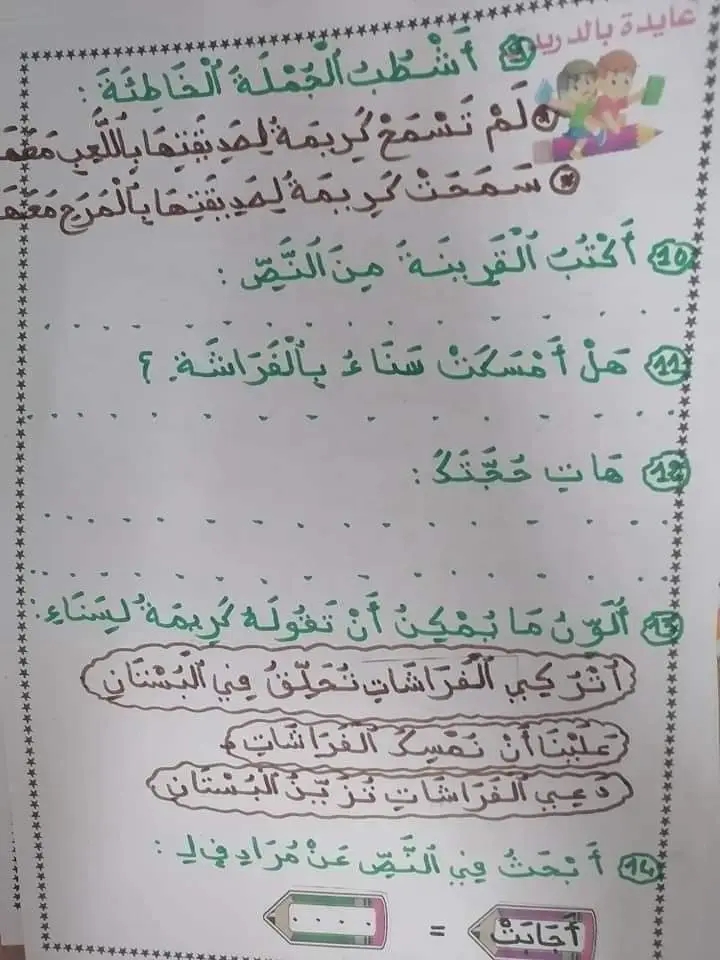 عايدة بالدريد
9 أَشْطُبُ الْجُمْلَةَ الْخَاطِئَةَ :
* لَمْ تَسْمَحْ كَرِيمَةُ لِصَدِيقَتِهَا بِاللَّعِبِ مَعَهَا
* سَمَحَتْ كَرِيمَةُ لِصَدِيقَتِهَا بِالْمَرَحِ مَعَهَا
10 أَكْتُبُ الْقَرِينَةَ مِنَ النَّصِّ :
11 هَلْ أَمْسَكَتْ سَنَاءُ بِالْفَرَاشَةِ ؟
12 هَاتِ حُجَّتَكَ :
13 أُلَوِّنُ مَا يُمْكِنُ أَنْ تَقُولَهُ كَرِيمَةُ لِسَنَاءِ :
اُتْرُكِي الْفَرَاشَاتِ تُحَلِّقُ فِي الْبُسْتَانِ
عَلَيْنَا أَنْ نُمْسِكَ الْفَرَاشَاتِ
دَعِي الْفَرَاشَاتِ تُزَيِّنُ الْبُسْتَانِ
14 أَبْحَثُ فِي النَّصِّ عَنْ مُرَادِفِ لِ :
أَجَابَتْ = . . . .